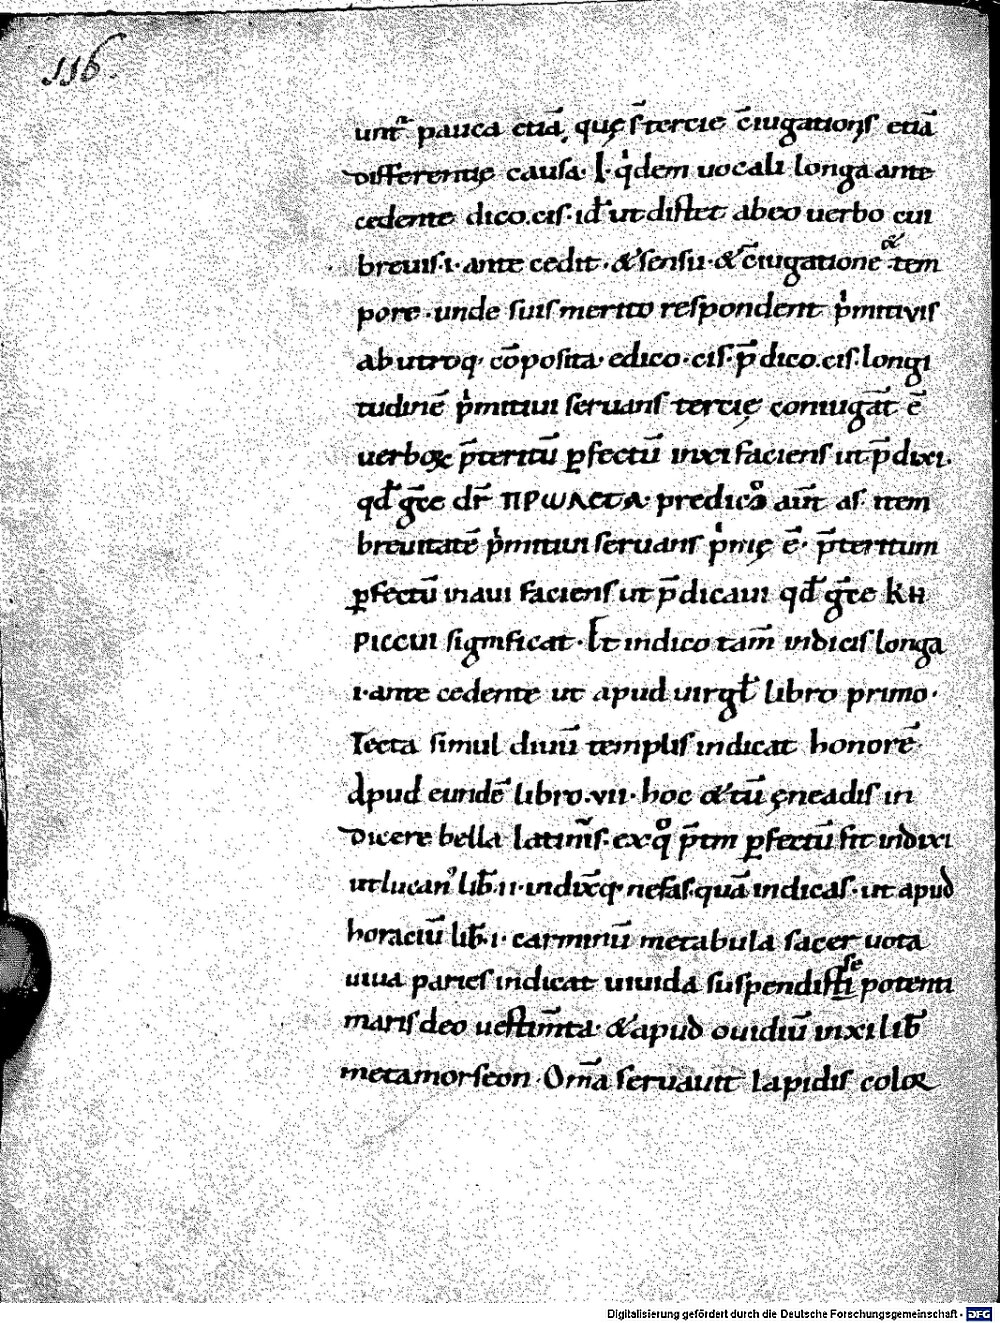 116.
unt᷑ pauca etiā, quę s̄ tercię c̄iugationis etiā
differentię causa. I. qͥdem uocali longa ante
cedente dico.cis. id ē ut distet abeo uerbo cui
breuis.i. ante cedit. & sensu. & c̄iugatione & tem
pore. unde suis merito respondent pͥmitiuis
ab utroq; cōposita. edico.cis. p̄dico.cis. longi
tudinē pͥmitiui seruans tercię coniugat̄ ē
uerboꝝ p̄teritū ꝑfectū inxi faciens ut p̄dixi.
qđ gͣce dr̄ ΠΡωΛЄΓΤΑ. predico aut̄ as item
breuitatē pͥmitiui seruans pͥmę ē. p̄teritum
ꝑfectū in aui faciens ut p̄dicaui qđ gͣce KH
PICCUI significat. Et indico tam̄ indicis longa
i. ante cedente ut apud uirgł libro primo.
Tecta simul diuū templis indicat honorē.
Apud eundē libro.vii. hoc & tū ęneadis in
dicere bella latini᷑s. ex qͦ p̄tm ꝑfectū fit indixi
ut lucan᷒ lib̄.ii. indixq; nefas. quā indicas. ut apud
horaciū lib̄.i. carminū me tabula sacer uota
uiua paries indicat uiuida suspendisti se potenti
maris deo uestim̄ta. & apud ouidiū in xi lib̄
metamorseon. Om̄a seruauit lapidis coloꝛ
Digitalisierung gefördert durch die Deutsche Forschungsgemeinschaft - DFG